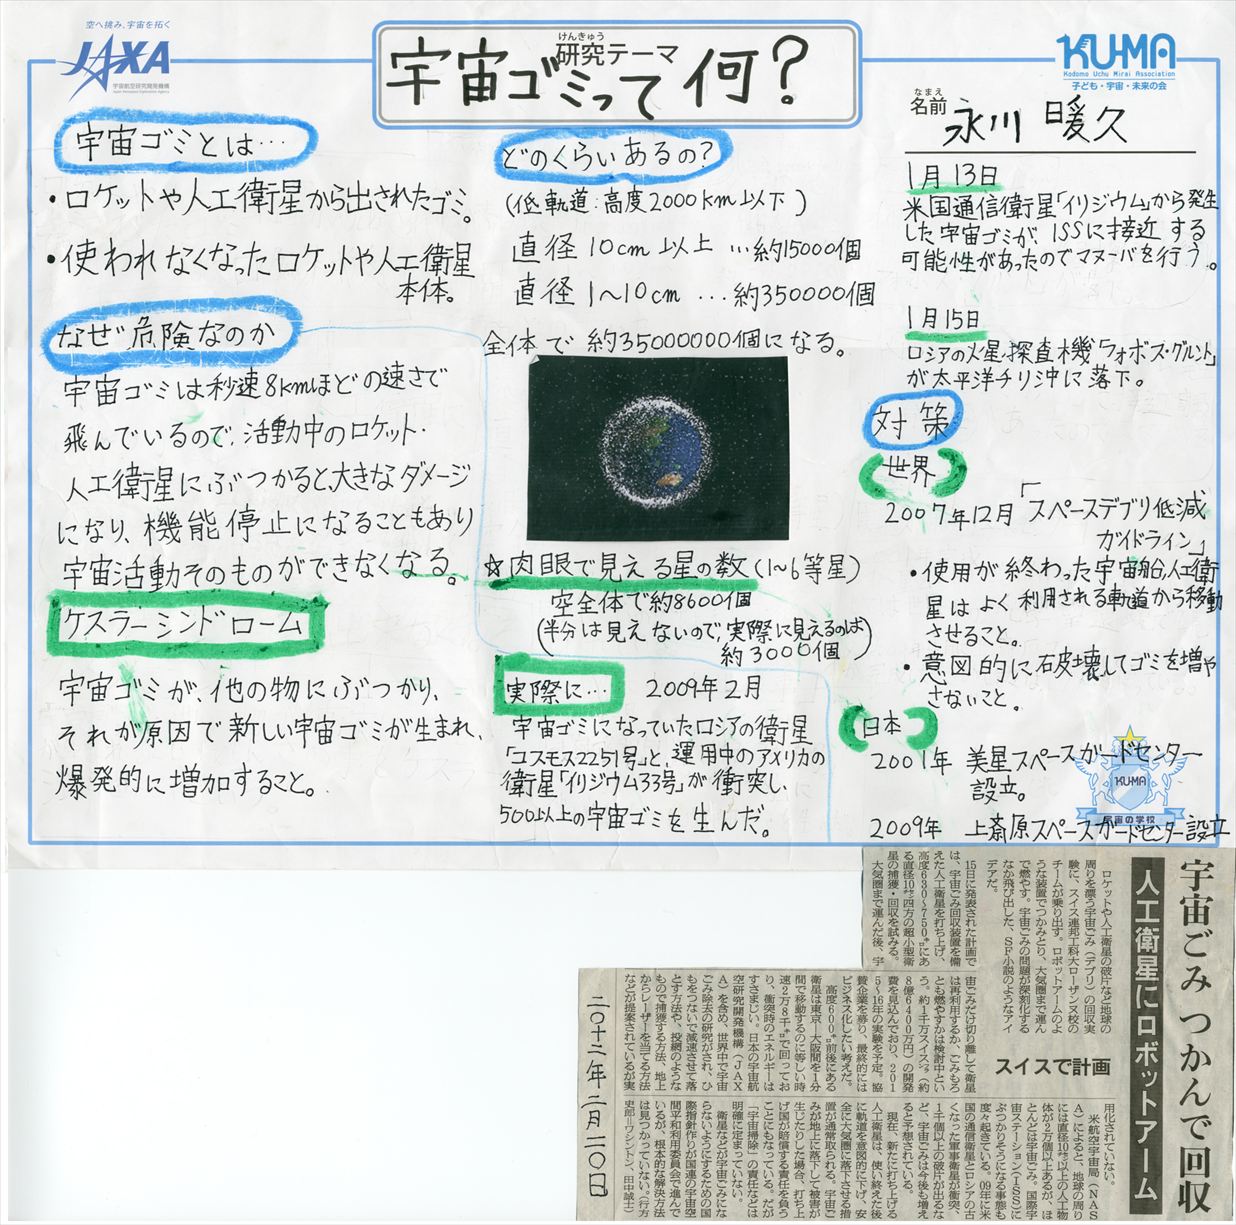 空へ挑み、宇宙を拓く
JAXA
宇宙航空研究開発機構
Japan Aerospace Exploration Agency
けんきゅう
研究テーマ
宇宙ゴミって何?
KU-MA
Kodomo Uchu Mirai Association
子ども・宇宙・未来の会
なまえ
名前 永川 暖久
宇宙ゴミとは…
・ロケットや人工衛星から出されたゴミ。
・使われなくなったロケットや人工衛星
本体。
なぜ危険なのか
宇宙ゴミは秒速8kmほどの速さで
飛んでいるので、活動中のロケット・
人工衛星にぶつかると、大きなダメージ
になり、機能停止になることもあり
宇宙活動そのものができなくなる。
ケスラーシンドローム
宇宙ゴミが、他の物にぶつかり、
それが原因で新しい宇宙ゴミが生まれ、
爆発的に増加すること。
どのくらいあるの?
(低軌道:高度2000km以下)
直径10cm以上…約15000個
直径1〜10cm…約350000個
全体で約35000000個になる。
☆肉眼で見える星の数(1〜6等星)
空全体で約8600個
(半分は見えないので、実際に見えるのは
約3000個)
実際に… 2009年2月
宇宙ゴミになっていたロシアの衛星
「コスモス2251号」と、運用中のアメリカの
衛星「イリジウム33号」が衝突し、
500以上の宇宙ゴミを生んだ。
1月13日
米国通信衛星「イリジウム」から発生
した宇宙ゴミが、ISSに接近する
可能性があったのでマヌーバを行う。
1月15日
ロシアの火星探査機「フォボス・グルント」
が太平洋チリ沖に落下。
対策
(世界)
2007年12月「スペースデブリ低減
ガイドライン」
・使用が終わった宇宙船、人工衛
星はよく利用される軌道から移動
させること。
・意図的に破壊してゴミを増や
さないこと。
(日本)
2001年 美星スペースガードセンター
設立。
2009年 上斎原スペースガードセンター設立
KU-MA
宇宙の学校
宇宙ごみ つかんで回収
人工衛星にロボットアーム
スイスで計画
ロケットや人工衛星の破片など地球の
周りを漂う宇宙ごみ(デブリ)の回収実
験に、スイス連邦工科大ローザンヌ校の
チームが乗り出す。ロボットアームのよ
うな装置でつかみとり、大気圏まで運ん
で燃やす。宇宙ごみの問題が深刻化する
なか飛び出した、SF小説のようなアイ
デアだ。
15日に発表された計画で
は、宇宙ごみ回収装置を備
えた人工衛星を打ち上げ、
高度630〜750㌔にあ
る直径10㌢四方の超小型衛
星の捕獲・回収を試みる。
大気圏まで運んだ後、宇
宙ごみだけ切り離して衛星
は再利用するか、ごみもろ
とも燃やすかは検討中とい
う。約1千万スイスフラン(約
8億6400万円)の開発
費を見込んでおり、201
5〜16年の実験を予定。協
賛企業を募り、最終的には
ビジネス化したい考えだ。
高度600㌔前後にある
衛星は東京―大阪間を1分
間で移動するのに等しい時
速2万8千㌔で回ってお
り、衝突時のエネルギーは
すさまじい。日本の宇宙航
空研究開発機構(JAX
A)を含め、世界中で宇宙
ごみ除去の研究がされ、ひ
もをつないで減速させて落
とす方法や、投網のような
もので捕獲する方法、地上
からレーザーを当てる方法
などが提案されているが実
用化されていない。
米航空宇宙局(NAS
A)によると、地球の周り
には直径10㌢以上の人工物
体が2万個以上あるが、ほ
とんどは宇宙ごみ。国際宇
宙ステーション(ISS)に
ぶつかりそうになる事態も
度々起きている。09年に米
国の通信衛星とロシアの古
くなった軍事衛星が衝突、
1千個以上の破片が出るな
ど、宇宙ごみは今後も増え
ると予想されている。
現在、新たに打ち上げる
人工衛星は、使い終えた後
に軌道を意図的に下げ、安
全に大気圏に落下させる措
置が通常取られる。宇宙ご
みが地上に落下して被害が
生じたりした場合、打ち上
げ国が賠償する責任を負う
ことにもなっている。だが
「宇宙掃除」の責任などは
明確に定まっていない。
衛星などが宇宙ごみにな
らないようにするための国
際指針作りが国連の宇宙空
間平和利用委員会で進んで
いるが、根本的な解決方法
は見つかっていない。(行方
史郎=ワシントン、田中誠士)
二〇十二年 二月 二〇日